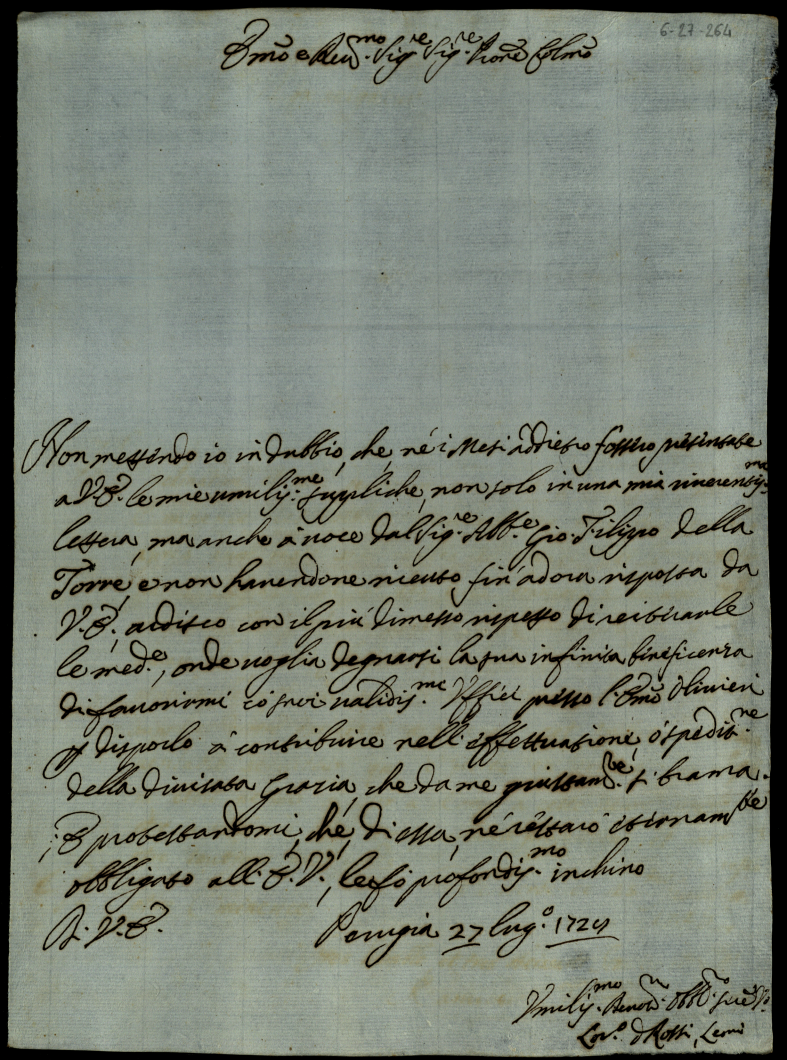 6-27-264
Emõ e Reu.mo Sig.re Sig.re Prone Colmõ
Non mettendo io in dubbio, che, nè i Mesi addietro fossero presentate
a V.E. le mie umiliss.me suppliche, non solo in una mia riuerentiss.ma
lettera, ma anche à uoce dal Sig.re Abb.e Gio. Filippo della
Torre, e non hauendone riceuto fin'adora risposta da
V.E., ardisco con il più dimesso rispetto di reiterarle
le med.e, onde uoglia degnarsi la sua infinita beneficenza
di fauorirmi co' suoi ualidiss.mi Vffici presso l'Emõ Oliuieri
p disporlo à contribuire nell'effettuatione, ò spedit.ne
della diuisata Grazia, che da me giustam.te si brama.
E protestandomi, che, di essa, ne restarò eternam.te
obbligato all'E.V., le fò profondiss.mo inchino
D. V.E. Perugia 27 lug.o 172
Vmiliss.mo Deuot. Obb.o
Lor.o Rossi, Leoni